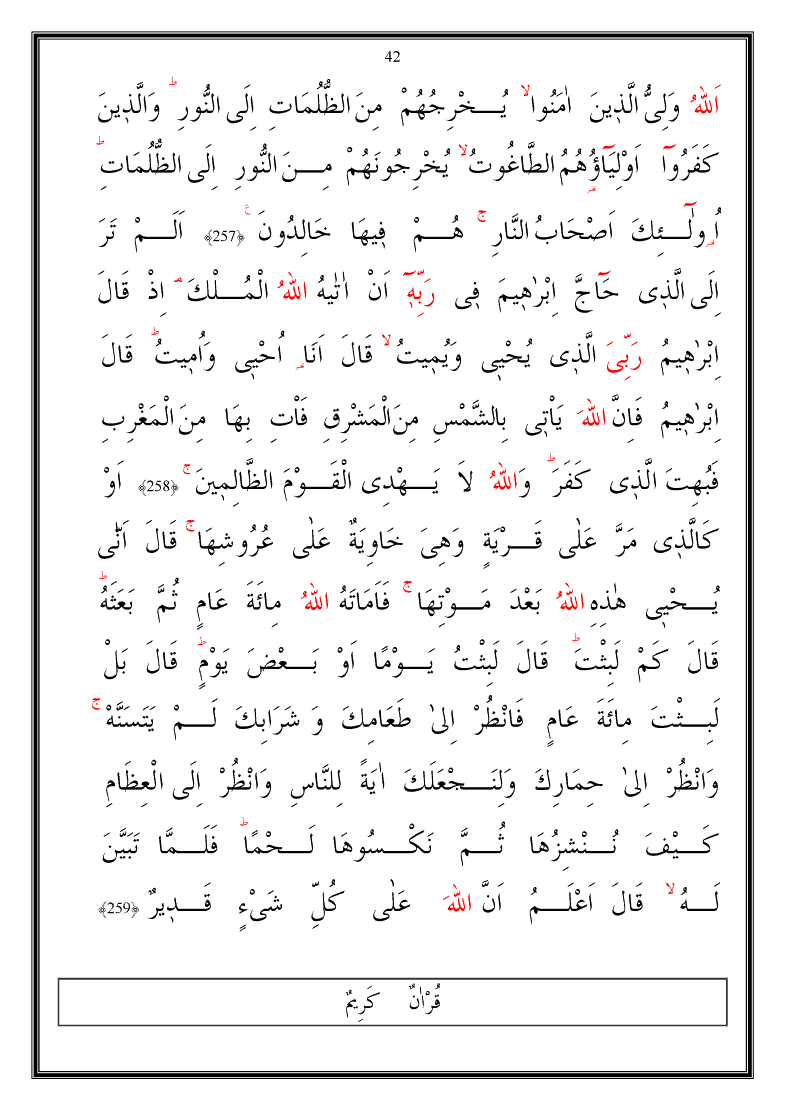 42
اَللّٰهُ وَلِىُّ الَّذ۪ينَ اٰمَنُواۙ يُـــخْرِجُهُمْ مِنَ الظُّلُمَاتِ اِلَى النُّورِۜ وَالَّذ۪ينَ
كَفَرُٓوا اَوْلِيَٓاؤُ۬هُمُ الطَّاغُوتُۙ يُخْرِجُونَهُمْ مِـــنَ النُّورِ اِلَى الظُّلُمَاتِۜ
اُو۬لٰٓـــئِكَ اَصْحَابُ النَّارِۚ هُـــمْ ف۪يهَا خَالِدُونَ۟ ﴿257﴾ اَلَـــمْ تَرَ
اِلَى الَّذ۪ى حَٓاجَّ اِبْرٰه۪يمَ ف۪ى رَبِّه۪ٓ اَنْ اٰتٰيهُ اللّٰهُ الْمُـــلْكَۢ اِذْ قَالَ
اِبْرٰه۪يمُ رَبِّىَ الَّذ۪ى يُحْي۪ى وَيُم۪يتُۙ قَالَ اَنَا۬ اُحْي۪ى وَاُم۪يتُۜ قَالَ
اِبْرٰه۪يمُ فَاِنَّ اللّٰهَ يَاْت۪ى بِالشَّمْسِ مِنَ الْمَشْرِقِ فَاْتِ بِهَا مِنَ الْمَغْرِبِ
فَبُهِتَ الَّذ۪ى كَفَرَۜ وَاللّٰهُ لَا يَـــهْدِى الْقَـــوْمَ الظَّالِم۪ينَۚ ﴿258﴾ اَوْ
كَالَّذ۪ى مَرَّ عَلٰى قَـــرْيَةٍ وَهِىَ خَاوِيَةٌ عَلٰى عُرُوشِهَاۚ قَالَ اَنّٰى
يُـــحْي۪ى هٰذِهِ اللّٰهُ بَعْدَ مَـــوْتِهَاۚ فَاَمَاتَهُ اللّٰهُ مِائَةَ عَامٍ ثُمَّ بَعَثَهُۜ
قَالَ كَمْ لَبِثْتَۜ قَالَ لَبِثْتُ يَـــوْمًا اَوْ بَـــعْضَ يَوْمٍۜ قَالَ بَلْ
لَبِـــثْتَ مِائَةَ عَامٍ فَانْظُرْ اِلىٰ طَعَامِكَ وَ شَرَابِكَ لَـــمْ يَتَسَنَّهْۚ
وَانْظُرْ اِلىٰ حِمَارِكَ وَلِنَـــجْعَلَكَ اٰيَةً لِلنَّاسِ وَانْظُرْ اِلَى الْعِظَامِ
كَـــيْفَ نُـــنْشِزُهَا ثُـــمَّ نَكْـــسُوهَا لَـــحْمًاۜ فَلَـــمَّا تَبَيَّنَ
لَـــهُۙ قَالَ اَعْلَـــمُ اَنَّ اللّٰهَ عَلٰى كُلِّ شَىْءٍ قَـــد۪يرٌ ﴿259﴾
قُرْاٰنٌ كَرِيمٌ